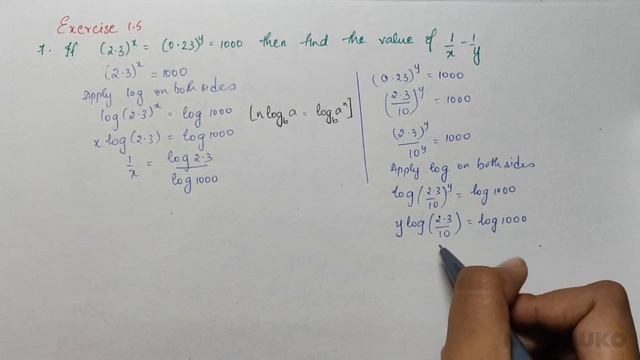 Exercise 1.5
7. If (2.3)^x = (0.23)^y = 1000 then find the value of 1/x - 1/y
(2.3)^x = 1000
Apply log on both sides
log(2.3)^x = log 1000 [n log_b a = log_b a^n]
x log(2.3) = log 1000
1/x = log 2.3 / log 1000
(0.23)^y = 1000
(2.3/10)^y = 1000
(2.3)^y / 10^y = 1000
Apply log on both sides
log(2.3/10)^y = log 1000
y log(2.3/10) = log 1000